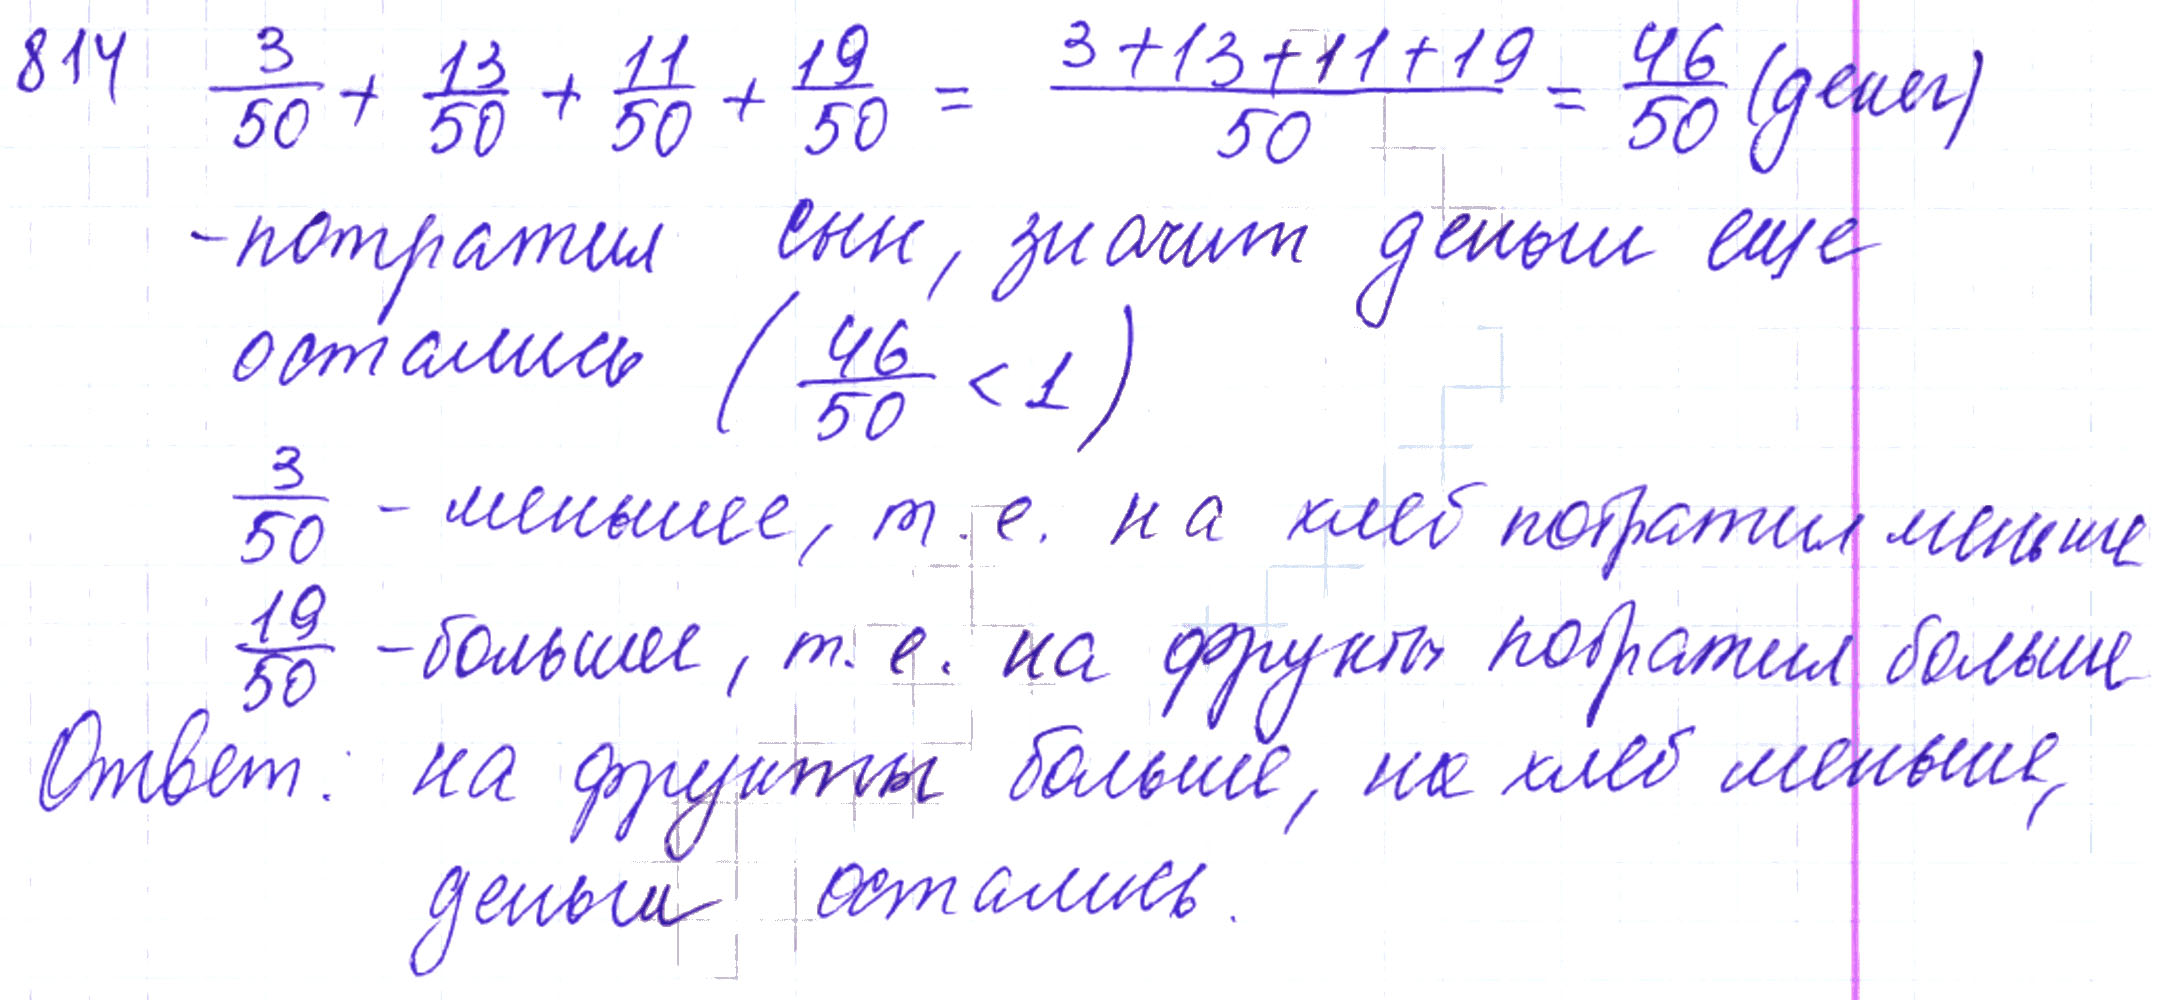 814 3/50 + 13/50 + 11/50 + 19/50 = (3+13+11+19)/50 = 46/50 (денег)
- потратил сын, значит деньги еще
остались (46/50 < 1)
3/50 - меньшее, т.е. на хлеб потратил меньше
19/50 - большее, т.е. на фрукты потратил больше
Ответ: на фрукты больше, на хлеб меньше,
деньги остались.